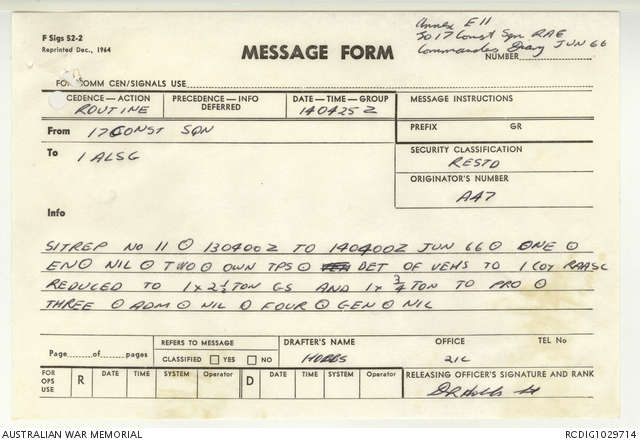 F Sigs 52-2
Reprinted Dec., 1964
MESSAGE FORM
Annex E11
To 17 Const Sqn RAE
Commanders Diary JUN 66
NUMBER
FOR COMM CEN/SIGNALS USE
CEDENCE—ACTION
ROUTINE
PRECEDENCE—INFO
DEFERRED
DATE—TIME—GROUP
140425Z
MESSAGE INSTRUCTIONS
From 17 CONST SQN
PREFIX GR
To 1 ALSG
SECURITY CLASSIFICATION
RESTD
ORIGINATOR'S NUMBER
A47
Info
SITREP NO 11 ⊙ 130400Z TO 140400Z JUN 66 ⊙ ONE ⊙
EN ⊙ NIL ⊙ TWO ⊙ OWN TPS ⊙ DET OF VEHS TO 1 COY RAASC
REDUCED TO 1 x 2 ½ TON GS AND 1 x ¾ TON TO PRO ⊙
THREE ⊙ ADM ⊙ NIL ⊙ FOUR ⊙ GEN ⊙ NIL
Page of pages
REFERS TO MESSAGE
CLASSIFIED YES NO
DRAFTER'S NAME
HOBBS
OFFICE
2IC
TEL No
FOR OPS USE
R DATE TIME SYSTEM Operator D DATE TIME SYSTEM Operator
RELEASING OFFICER'S SIGNATURE AND RANK
AUSTRALIAN WAR MEMORIAL
RCDIG1029714